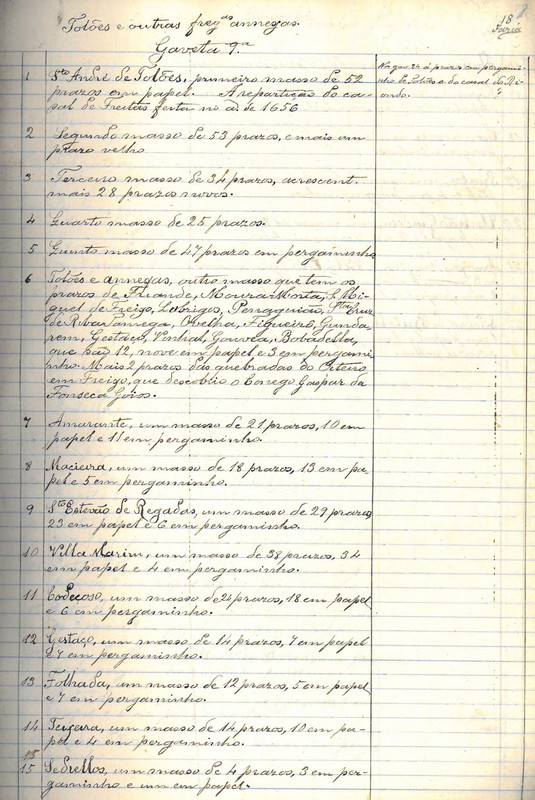 18
Faria
Tolões e outras freg.as annexas.
Gaveta 9.a
1 Sto André de Tolões, primeiro masso de 52
prazos em papel. A repartição do ca-
sal de Freitas feita no aº de 1656
Na gav 24 á prazos em pergami-
nho de Tolões e do casal do Ri-
ondo.
2 Segundo masso de 53 prazos, e mais um
prazo velho
3 Terceiro masso de 34 prazos, acrescent.
mais 28 prazos novos.
4 Quarto masso de 25 prazos.
5 Quinto masso de 47 prazos em pergaminho
6 Tolões e annexas, outro masso que tem os
prazos de Friande, Moura Morta, S. Mi-
guel de Freigo, Lobrigos, Penaguião, Sta Cruz
de Riba Tamega, Ovelha, Figueiró, Gunda
rem, Gestaço, Pinhal, Gouvêa, Bobadella,
que são 12, nove em papel e 3 em pergami
nho. Mais 2 prazos das quebradas do Oiteiro
em Freigo, que descobrio o Conego Gaspar da
Fonseca Goios.
7 Amarante, um masso de 21 prazos, 10 em
papel e 11 em pergaminho.
8 Macieira, um masso de 18 prazos, 13 em pa-
pel e 5 em pergaminho.
9 Sto Estevão de Regadas, um masso de 29 prazos,
23 em papel e 6 em pergaminho.
10 Villa Marim, um masso de 38 prazos, 34
em papel e 4 em pergaminho.
11 Codeçoso, um masso de 24 prazos, 18 em papel
e 6 em pergaminho.
12 Gestaço, um masso de 14 prazos, 7 em papel
e 7 em pergaminho.
13 Folhada, um masso de 12 prazos, 5 em papel
e 7 em pergaminho.
14 Teixeira, um masso de 14 prazos, 10 em pa-
pel e 4 em pergaminho.
15
15 Sedrellos, um masso de 4 prazos, 3 em per-
gaminho e um em papel.